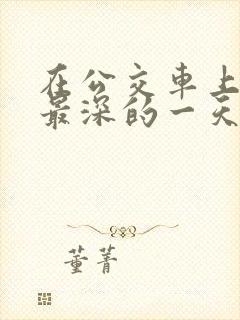 在公交车上
最深的一天
董菁